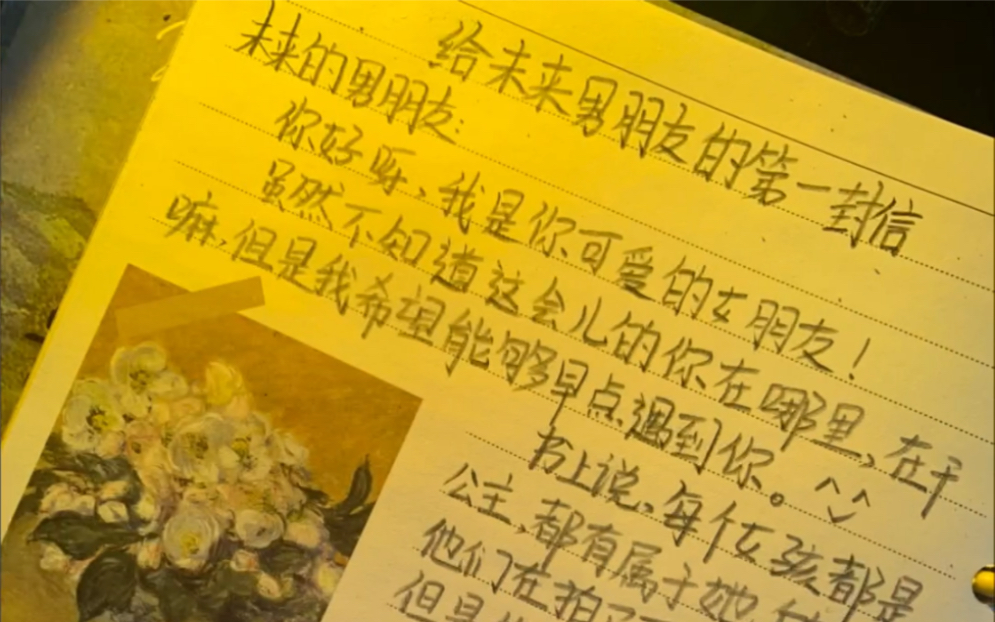 给未来男朋友的第一封信
未来的男朋友:
你好呀、我是你可爱的女朋友!
虽然不知道这会儿的你在哪里,在干
嘛,但是我希望能够早点遇到你。^_^
书上说、每个女孩都是
公主,都有属于她
他们在拍
但是